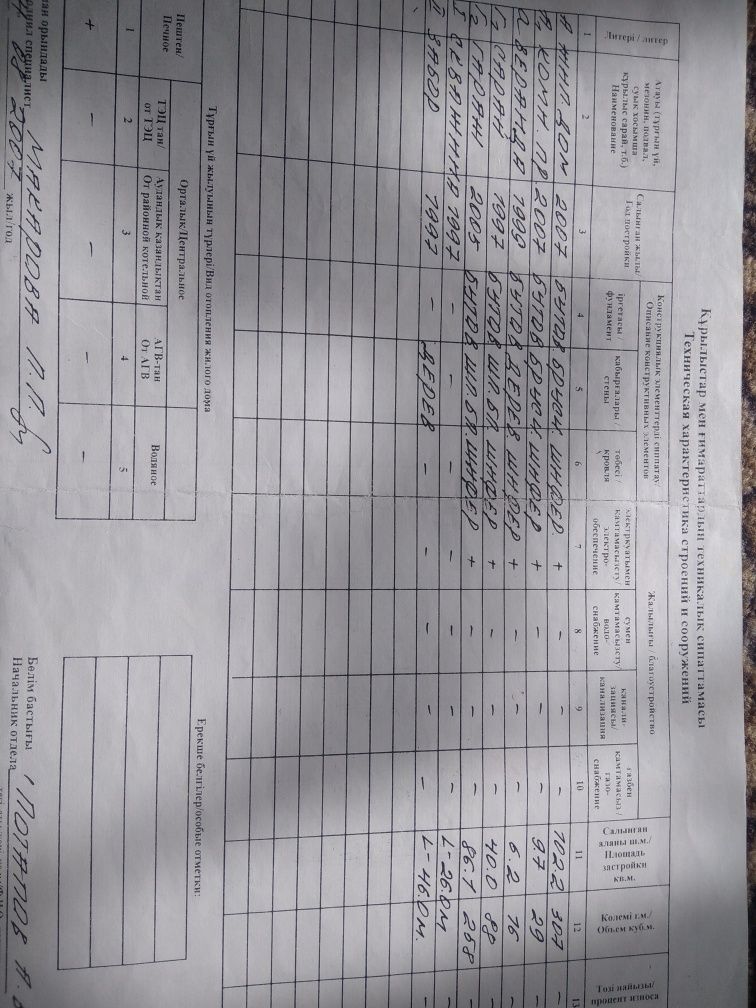 Құрылыстар мен ғимараттардың техникалық сипаттамасы
Техническая характеристика строений и сооружений
Литері / литер
Атауы (тұрғын үй, мезонин, подвал, суық қосымша құрылыс сарай, т.б.) Наименование
Салынған жылы/ Год постройки
Конструкциялық элементтерді сипаттау/ Описание конструктивных элементов
іргетасы фундамент
қабырғалары/ стены
төбесі / кровля
Жалылығы / благоустройство
электрқуатымен камтамасызету/ электро-обеспечение
сумен камтамасызету/ водо-снабжение
канали-зациясы/ канализация
газбен камтамасыз / газо-снабжение
Салынған аланы ш.м./ Площадь застройки кв.м.
Көлемі г.м./ Объем куб.м.
Тозі пайызы/ процент износа
1 2 3 4 5 6 7 8 9 10 11 12 13
А ЖИЛ. ДОМ 2007 БУТОВ БРУСЧ. ШИФЕР. + - - - 102.2 307 -
А1 КОМН. ПР 2007 БУТОВ БРУСЧ. ШИФЕР + - - - 9.7 29 -
а ВЕРАНДА 1999 БУТОВ ДЕРЕВ ШИФЕР + - - - 6.2 16 -
Г1 ГАРАЖ 1997 БУТОВ ШЛ.БЛ. ШИФЕР + - - - 40.0 88 -
Г2 ГАРАЖ 2005 БУТОВ ШЛ.БЛ. ШИФЕР + - - - 86.1 258 -
1997 - - - - - - - L-26.0м -
ЗАБОР 1997 - ДЕРЕВ - - - - - L-46.0м. -
Тұрғын үй жылуынын түрлері/Вид отопления жилого дома
Пештен/ Печное
Орталық/Центральное
ТЭЦ тан/ от ТЭЦ
Аудандық казандыктан От районной котельной
АГВ-тан От АГВ
Водяное
1 2 3 4 5
+ - - - -
Ерекше белгілер/особые отметки:
орындады
специалист МАКАРОВА Л.П.
2007 жыл/год
Бөлім бастығы
Начальник отдела ПОТАПОВ А.